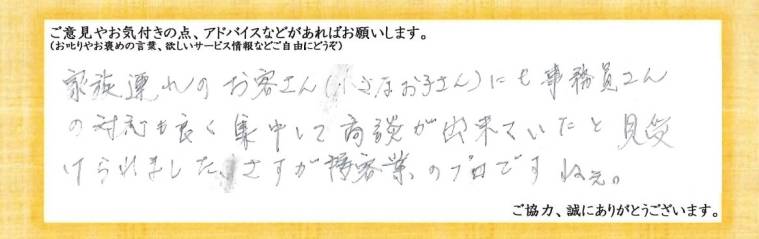 ご意見やお気付きの点、アドバイスなどがあればお願いします。
(お叱りやお褒めの言葉、欲しいサービス情報などご自由にどうぞ)
家族連れのお客さん(小さなお子さん)にも事務員さん
の対応も良く集中して商談が出来ていたと見受
けられました、さすが接客業のプロですねぇ。
ご協力、誠にありがとうございます。